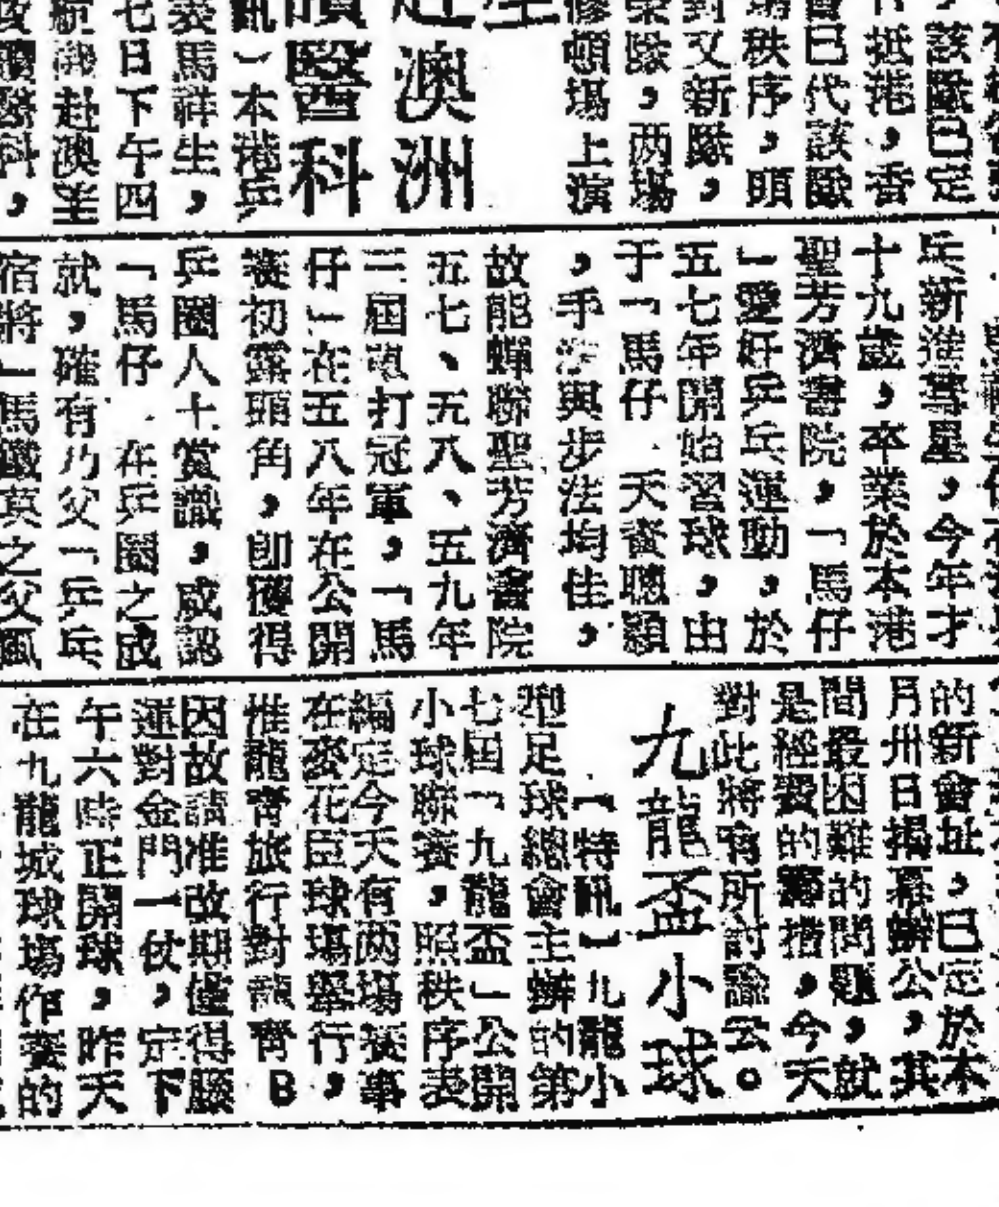 該隊已定
抵港，香
會已代該隊
場秩序，頭
對文新隊，
隊，两場
修頓場上演
赴澳洲
讀醫科
訊）本港乒
馬祥生，
七日下午四
航機赴澳坐
攻讀醫科，
乒新進星，今年才
十九歲，卒業於本港
聖芳濟書院，「馬仔
」愛好乒乓運動，於
五七年開始習球，由
于「馬仔　天資聰穎
，手法與步法均佳，
故能蟬聯聖芳濟書院
五七、五八、五九年
三屆單打冠軍，「馬
仔」在五八年在公開
賽初露頭角，即獲得
乒圈人士賞識，咸認
「馬仔　在乒圈之成
就，確有乃父「乒乓
宿將」馬鐵英之父風
的新會址，已定於本
月卅日揭幕辦公，其
間最困難的問題，就
是經費的籌措，今天
對此將有所討論云。
九龍盃小球
【特訊】九龍小
型足球總會主辦的第
七屆「九龍盃」公開
小球聯賽，照秩序表
編定今天有两場賽事
在麥花臣球場舉行，
惟龍青旅行對龍青B
因故請准改期僅得滕
運對金門一仗，定下
午六時正開球，昨天
在九龍城球場作賽的